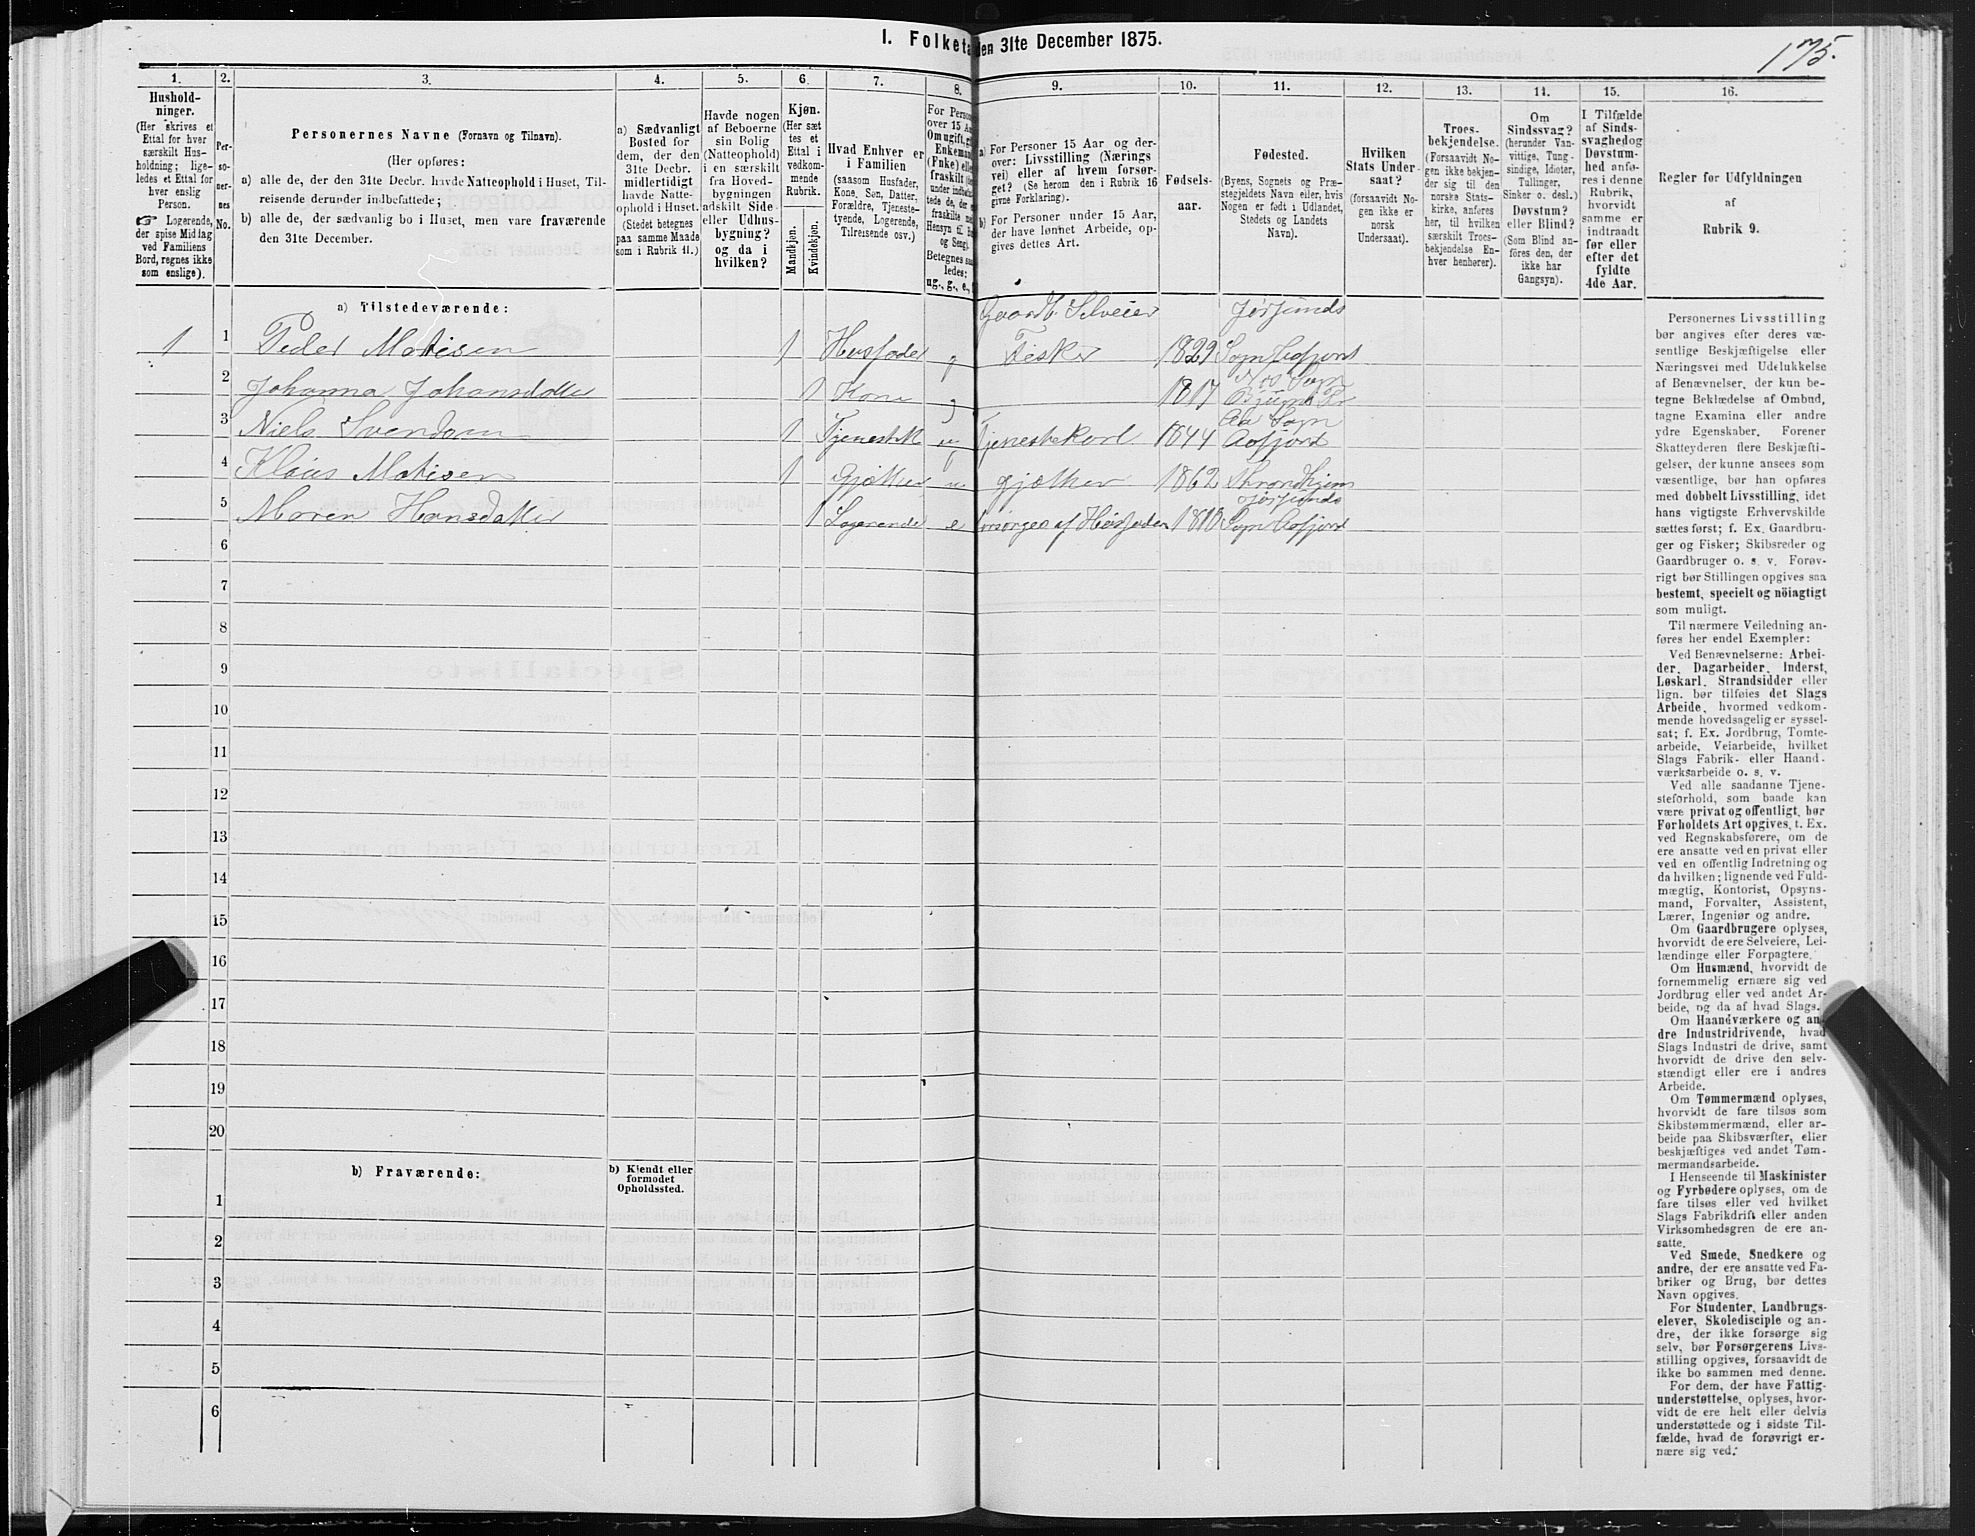 I. Folketa
den 31te December 1875.
175.
1.
2.
3.
4.
5.
6.
7.
8.
9.
10.
11.
12.
13.
14.
15.
16.
Hushold-
ninger.
(Her skrives et
Ettal for hver
særskilt Hus-
holdning; lige-
ledes et Ettal for
hver enslig
Person.
☞ Logerende,
der spise Middag
ved Familiens
Bord, regnes ikke
som enslige).
Per-
so-
ner-
nes
No.
Personernes Navne (Fornavn og Tilnavn).
(Her opføres:
a) alle de, der den 31te Decbr. havde Natteophold i Huset, Til-
reisende derunder indbefattede;
b) alle de, der sædvanlig bo i Huset, men vare fraværende
den 31te December.
a) Sædvanligt
Bosted for
dem, der den
31te Decbr.
midlertidigt
havde Natte-
ophold i Huset.
(Stedet betegnes
paa samme Maade
som i Rubrik 11.)
Havde nogen
af Beboerne
sin Bolig
(Natteophold)
i en særskilt
fra Hoved-
bygningen
adskilt Side-
eller Udhus-
bygning?
og da i
hvilken?
Kjøn.
(Her sæt
tes et
Ettal i
vedkom-
mende
Rubrik.
Mandkjøn.
Kvindekjøn.
Hvad Enhver er
i Familien
(saasom Husfader,
Kone, Søn, Datter,
Forældre, Tjeneste-
tyende, Logerende,
Tilreisende osv.)
For Person
over 15 Aa
Om ugift, gi
Enkeman
(Fnke) elle
fraskilt (de
under indbefat
tede de, der e
fraskilte me
Hensyn til B
og Seng).
Betegnes saa
ledes:
ug., g., e.,
a) For Personer 15 Aar og der-
over: Livsstilling (Nærings
vei) eller af hvem forsør-
get? (Se herom den i Rubrik 16
givne Forklaring).
b) For Personer under 15 Aar,
der have lønnet Arbeide, op-
gives dettes Art.
Fødsels-
aar.
Fødested.
(Byens, Sognets og Præ-
stegjeldets Navn eller, hvis
Nogen er født i Udlandet,
Stedets og Landets
Navn).
Hvilken
Stats Under-
saat?
(forsaavidt No-
gen ikke er
norsk
Undersaat).
Troes-
bekjendelse.
(Forsaavidt No-
gen ikke bekjen-
der sig til den
norske Stats-
kirke, anføres
her, til hvilken
særskilt Troes-
bekjendelse En-
hver henhører).
Om
Sindssvag?
(herunder Van-
vittige, Tung-
sindige, Idioter,
Tullinger,
Sinker o. desl.)
Døvstum?
eller Blind?
(Som Blind an-
føres den, der
ikke har
Gangsyn).
I Tilfælde
af Sinds-
svaghedog
Døvstum-
hed anfø-
res i denne
Rubrik,
hvorvidt
samme er
indtraadt
før eller
efter det
fyldte
4de Aar.
Regler for Udfyldningen
af
Rubrik 9.
a) Tilstedeværende:
Gaardb. Selveier
Jøssunds
1 1 Peder Matisen 1 Husfader g Fisker 1829 Sogn Aafjord
Nes Sogn
2 Johanna Johansdatter 1 Kone g 1817 Bjugns Pr
Aa Sogn
3 Niels Svendsen 1 Tjenestk u Tjenestekarl 1844 Aafjord
4 Klaus Matisen 1 Gjætter u gjætter 1862 Throndhjem
Jøssunds
5 Maren Hansdatter 1 Logerende e forsørges af Husfaderen 1810 Sogn Aafjord
6
7
8
9
10
11
12
13
14
15
16
17
18
19
20
b) Fraværende:
b) Kjendt eller
formodet
Opholdssted.
1
2
3
4
5
6
Personernes Livsstilling
bør angives efter deres væ-
sentlige Beskjæftigelse eller
Næringsvei med Udelukkelse
af Benævnelser, der kun be-
tegne Beklædelse af Ombud,
tagne Examina eller andre
ydre Egenskaber. Forener
Skatteyderen flere Beskjæfti-
gelser, der kunne ansees som
væsentlige, bør han opføres
med dobbelt Livsstilling, idet
hans vigtigste Erhvervskilde
sættes først; f. Ex. Gaardbru-
ger og Fisker; Skibsreder og
Gaardbruger o. s. v. Forøv-
rigt bør Stillingen opgives saa
bestemt, specielt og nöiagtigt
som muligt.
Til nærmere Veiledning an-
føres her endel Exempler:
Ved Benævnelserne: Arbei-
der, Dagarbeider, Inderst,
Løskarl, Strandsidder eller
lign. bør tilføies det Slags
Arbeide, hvormed vedkom-
mende hovedsagelig er syssel-
sat; f. Ex. Jordbrug, Tomte-
arbeide, Veiarbeide, hvilket
Slags Fabrik- eller Haand-
værksarbeide o. s. v.
Ved alle saadanne Tjene-
steforhold, som baade kan
være privat og offentligt, bør
Forholdets Art opgives, t. Ex.
ved Regnskabsførere, om de
ere ansatte ved en privat eller
ved en offentlig Indretning og
da hvilken; lignende ved Fuld-
mægtig, Kontorist, Opsyns-
mand, Forvalter, Assistent,
Lærer, Ingeniør og andre.
Om Gaardbrugere oplyses,
hvorvidt de ere Selveiere, Lei-
lændinge eller Forpagtere.
Om Husmænd, hvorvidt de
fornemmelig ernære sig ved
Jordbrug eller ved andet Ar-
beide, og da af hvad Slags.
Om Haandværkere og an-
dre Industridrivende, hvad
Slags Industri de drive, samt
hvorvidt de drive den selv-
stændigt eller ere i andres
Arbeide.
Om Tømmermænd oplyses,
hvorvidt de fare tilsøs som
Skibstømmermænd, eller ar-
beide paa Skibsværfter, eller
beskjæftiges ved andet Tøm-
mermandsarbeide.
I Henseende til Maskinister
og Fyrbødere oplyses, om de
fare tilsøs eller ved hvilket
Slags Fabrikdrift eller anden
Virksomhedsgren de ere an-
satte.
Ved Smede, Snedkere og
andre, der ere ansatte ved Fa-
briker og Brug, bør dettes
Navn opgives.
For Studenter, Landbrugs-
elever, Skoledisciple og an-
dre, der ikke forsørge sig
selv, bør Forsørgerens Livs-
stilling opgives, forsaavidt de
ikke bo sammen med denne.
For dem, der have Fattig-
understøttelse, oplyses, hvor-
vidt de ere helt eller delvis
understøttede og i sidste Til-
fælde, hvad de forøvrigt er-
nære sig ved.